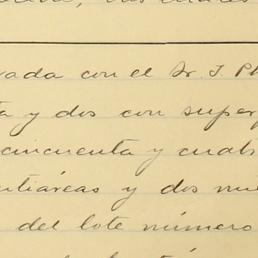 vada con el Sr. J. Ph
ta y dos con super
cincuenta y cuat
tiáreas y dos mi
del lote número